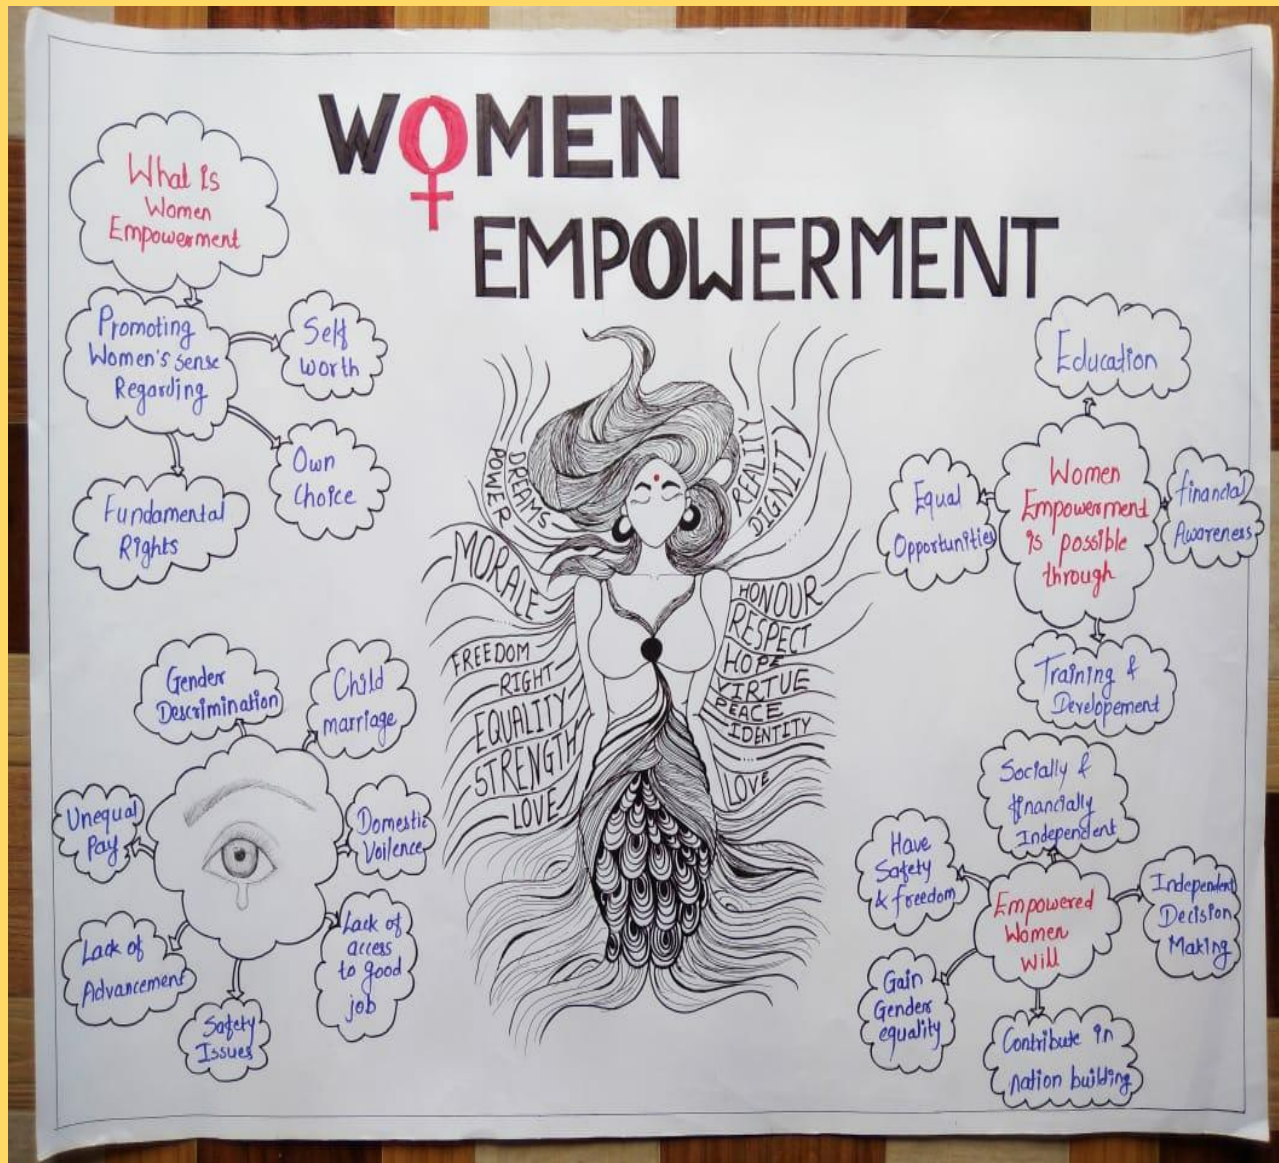 WOMEN
EMPOWERMENT
What is
Women
Empowerment
Promoting
Women's sense
Regarding
Self
worth
Own
Choice
Fundamental
Rights
Gender
Descrimination
Child
marriage
Unequal
Pay
Domestic
Voilence
Lack of
Advancement
Lack of
access
to good
job
Safety
Issues
POWER
DREAMS
MORALE
FREEDOM
RIGHT
EQUALITY
STRENGTH
LOVE
REALITY
DIGNITY
HONOUR
RESPECT
HOPE
VIRTUE
PEACE
IDENTITY
LOVE
Education
Women
Empowerment
is possible
through
Equal
Opportunities
financial
Awareness
Training &
Developement
Socially &
financially
Independent
Have
Safety
& freedom
Empowered
Women
Will
Independent
Decision
Making
Gain
Gender
equality
Contribute in
nation building